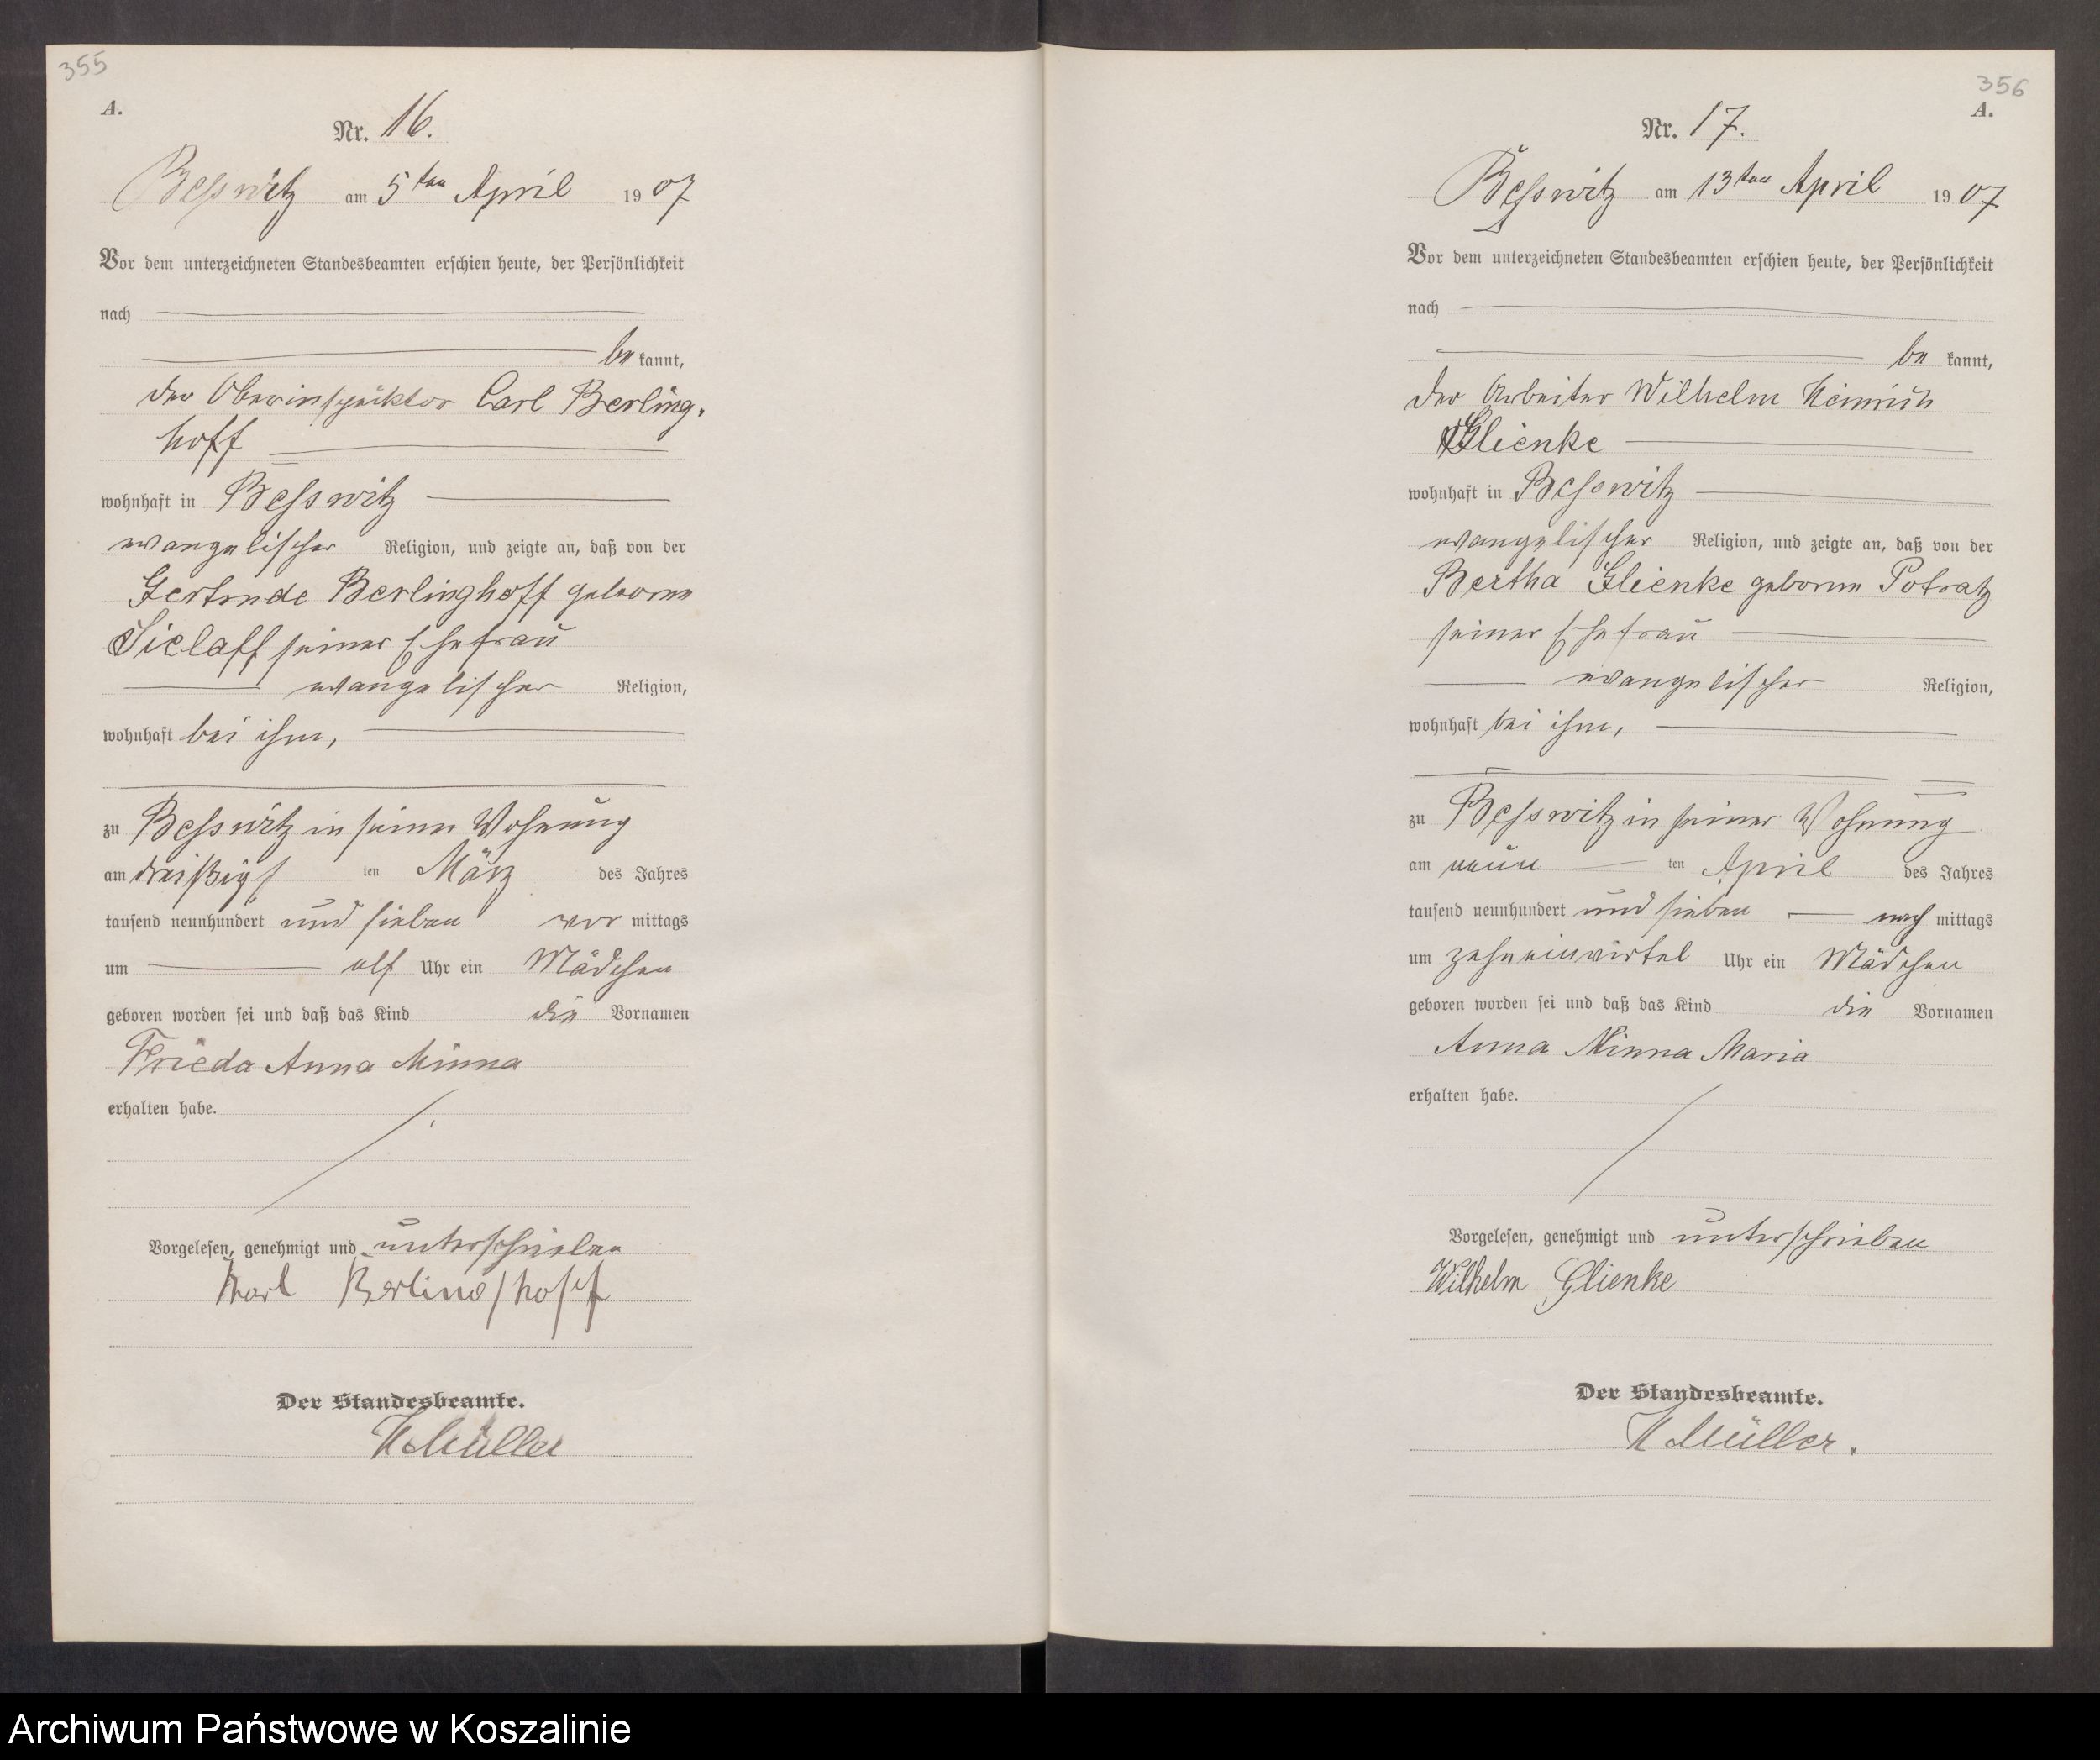 355
A.
Nr. 16.
Besswitz am 5ten April 1907
Vor dem unterzeichneten Standesbeamten erschien heute, der Persönlichkeit
nach
be kannt,
der Oberinspecktor Carl Berling-
hoff
wohnhaft in Besswitz
evangelischer Religion, und zeigte an, daß von der
Gertrude Berlinghoff geborne
Sielaff seiner Ehefrau
evangelischer Religion,
wohnhaft bei ihm,
zu Besswitz in seiner Wohnung
am dreißigsten März des Jahres
tausend neunhundert und sieben vor mittags
um elf Uhr ein Mädchen
geboren worden sei und daß das Kind die Vornamen
Frieda Anna Minna
erhalten habe.
Vorgelesen, genehmigt und unterschrieben
Karl Berlinghoff
Der Standesbeamte.
Müller
356
A.
Nr. 17.
Besswitz am 13ten April 1907
Vor dem unterzeichneten Standesbeamten erschien heute, der Persönlichkeit
nach
be kannt,
der Arbeiter Wilhelm Heinrich
Glienke
wohnhaft in Besswitz
evangelischer Religion, und zeigte an, daß von der
Bertha Glienke geborne Potratz
seiner Ehefrau
evangelischer Religion,
wohnhaft bei ihm,
zu Besswitz in seiner Wohnung
am neun ten April des Jahres
tausend neunhundert und sieben nach mittags
um zehneinviertel Uhr ein Mädchen
geboren worden sei und daß das Kind die Vornamen
Anna Minna Maria
erhalten habe.
Vorgelesen, genehmigt und unterschrieben
Wilhelm Glienke
Der Standesbeamte.
Müller.
Archiwum Państwowe w Koszalinie